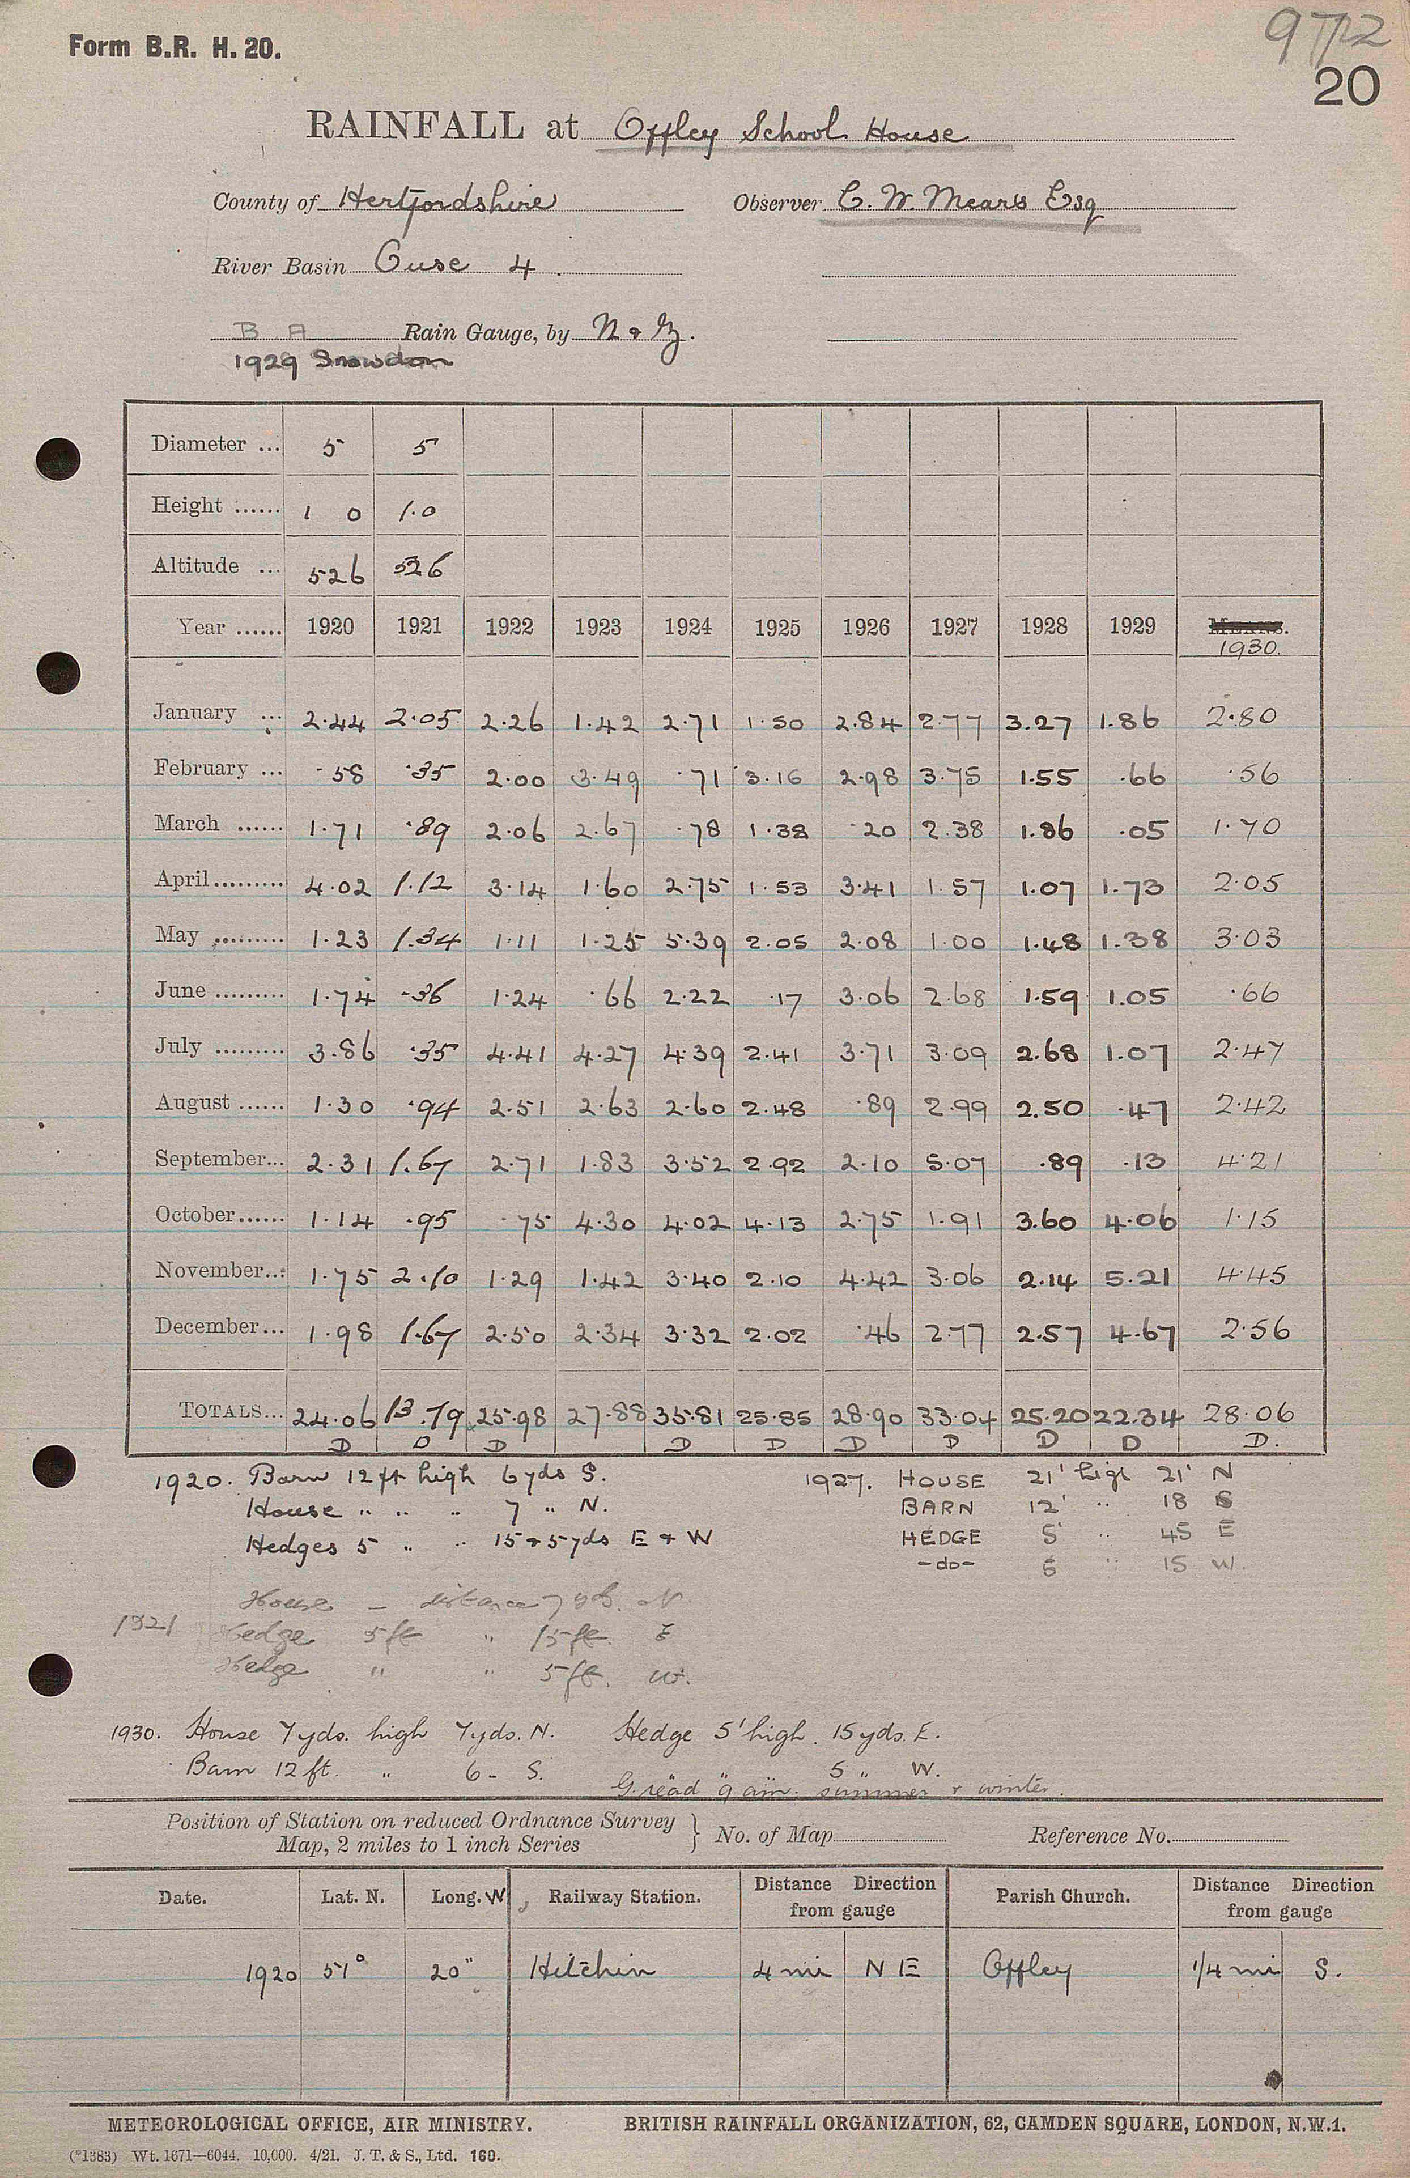 Form B.R. H. 20.
9772
20
RAINFALL at Offley School House
County of Hertfordshire Observer C. W. Mears Esq
River Basin Ouse 4
B A Rain Gauge, by N & Z.
1929 Snowdon
Diameter ... 5 5
Height ...... 1 0 1.0
Altitude ... 526 526
Year ...... 1920 1921 1922 1923 1924 1925 1926 1927 1928 1929 MEANS.
1930.
January ... 2.44 2.05 2.26 1.42 2.71 1.50 2.84 2.77 3.27 1.86 2.80
February ... .58 .35 2.00 3.49 .71 3.16 2.98 3.75 1.55 .66 .56
March ...... 1.71 .89 2.06 2.67 .78 1.38 .20 2.38 1.86 .05 1.70
April......... 4.02 1.12 3.14 1.60 2.75 1.53 3.41 1.57 1.07 1.73 2.05
May ......... 1.23 1.34 1.11 1.25 5.39 2.05 2.08 1.00 1.48 1.38 3.03
June ......... 1.74 .36 1.24 .66 2.22 .17 3.06 2.68 1.59 1.05 .66
July ......... 3.86 .35 4.41 4.27 4.39 2.41 3.71 3.09 2.68 1.07 2.47
August ...... 1.30 .94 2.51 2.63 2.60 2.48 .89 2.99 2.50 .47 2.42
September... 2.31 1.67 2.71 1.83 3.52 2.92 2.10 5.07 .89 .13 4.21
October...... 1.14 .95 .75 4.30 4.02 4.13 2.75 1.91 3.60 4.06 1.15
November... 1.75 2.10 1.29 1.42 3.40 2.10 4.42 3.06 2.14 5.21 4.45
December... 1.98 1.67 2.50 2.34 3.32 2.02 .46 2.77 2.57 4.67 2.56
TOTALS... 24.06 13.79 25.98 27.88 35.81 25.85 28.90 33.04 25.20 22.34 28.06
D D D D D D D D D D.
1920. Barn 12 ft high 6 yds S. 1927. HOUSE 21' high 21' N
House " " " 7 " N. BARN 12' " 18 S
Hedges 5 " " 15 & 5 yds E & W HEDGE 5' " 45 E
-do- 6 " 15 W.
House - distance 7 yds. N
1921 Hedge 5 ft " 15 ft. E
Hedge " " 5 ft. W.
1930. House 7 yds. high 7 yds. N. Hedge 5' high. 15 yds. E.
Barn 12 ft. " 6 - S. " " 5 " W.
G. read 9 am. summer & winter.
Position of Station on reduced Ordnance Survey
Map, 2 miles to 1 inch Series } No. of Map Reference No.
Date. Lat. N. Long. W Railway Station. Distance Direction from gauge Parish Church. Distance Direction from gauge
1920 51° 20" Hitchin 4 mi N E Offley 1/4 mi S.
METEOROLOGICAL OFFICE, AIR MINISTRY. BRITISH RAINFALL ORGANIZATION, 62, CAMDEN SQUARE, LONDON, N.W.1.
(*1383) Wt. 1671—6044. 10,000. 4/21. J. T. & S., Ltd. 160.